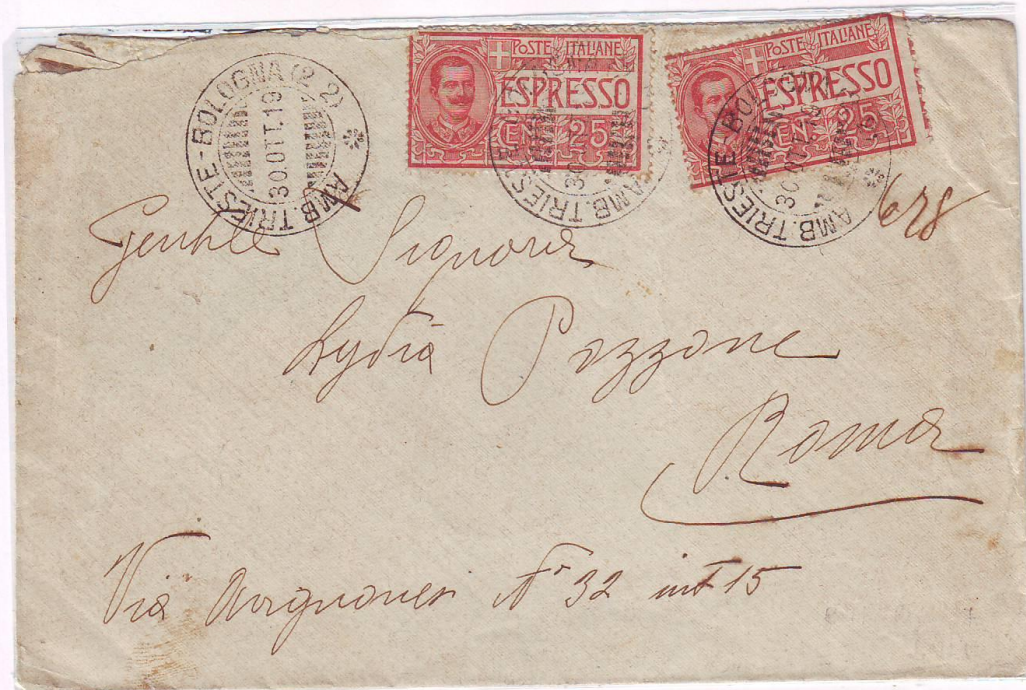 AMB. TRIESTE-BOLOGNA (22)
30.OTT.19
POSTE ITALIANE
ESPRESSO
CENT. 25
AMB. TRIESTE-BOLOGNA
30.OTT.19
POSTE ITALIANE
ESPRESSO
CENT. 25
AMB. TRIESTE-BOLOGNA
30.OTT.19
628
Gentile Signora
Lydia Pozzone
Roma
Via Avignonesi N° 32 int 15